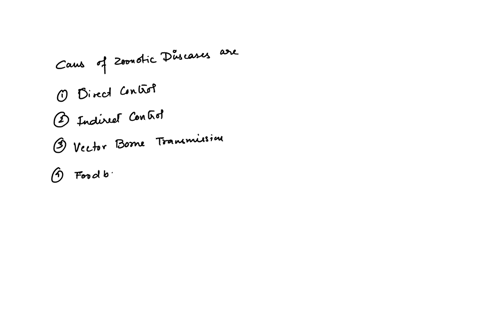 Caus of Zoonotic Diseases are
① Direct Control
② Indirect Control
③ Vector Borne Transmission
④ Foodb.